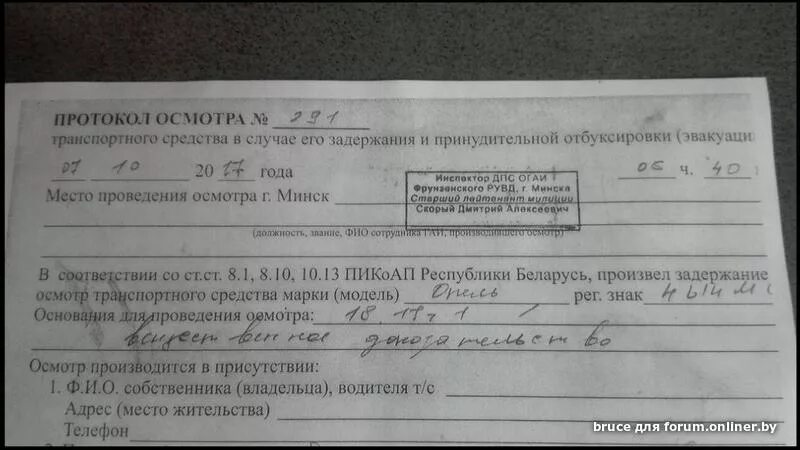 ПРОТОКОЛ ОСМОТРА № 291
транспортного средства в случае его задержания и принудительной отбуксировки (эвакуаци
07 10 2017 года 06 ч. 40
Инспектор ДПС ОГАИ
Фрунзенского РУВД, г. Минска
Старший лейтенант милиции
Скорый Дмитрий Алексеевич
Место проведения осмотра г. Минск
(должность, звание, ФИО сотрудника ГАИ, производившего осмотр)
В соответствии со ст.ст. 8.1, 8.10, 10.13 ПИКоАП Республики Беларусь, произвел задержание
осмотр транспортного средства марки (модель) Опель рег. знак
Основания для проведения осмотра: 18.19 ч 1
вещественное доказательство
Осмотр производится в присутствии:
1. Ф.И.О. собственника (владельца), водителя т/с
Адрес (место жительства)
Телефон
bruce для forum.onliner.by